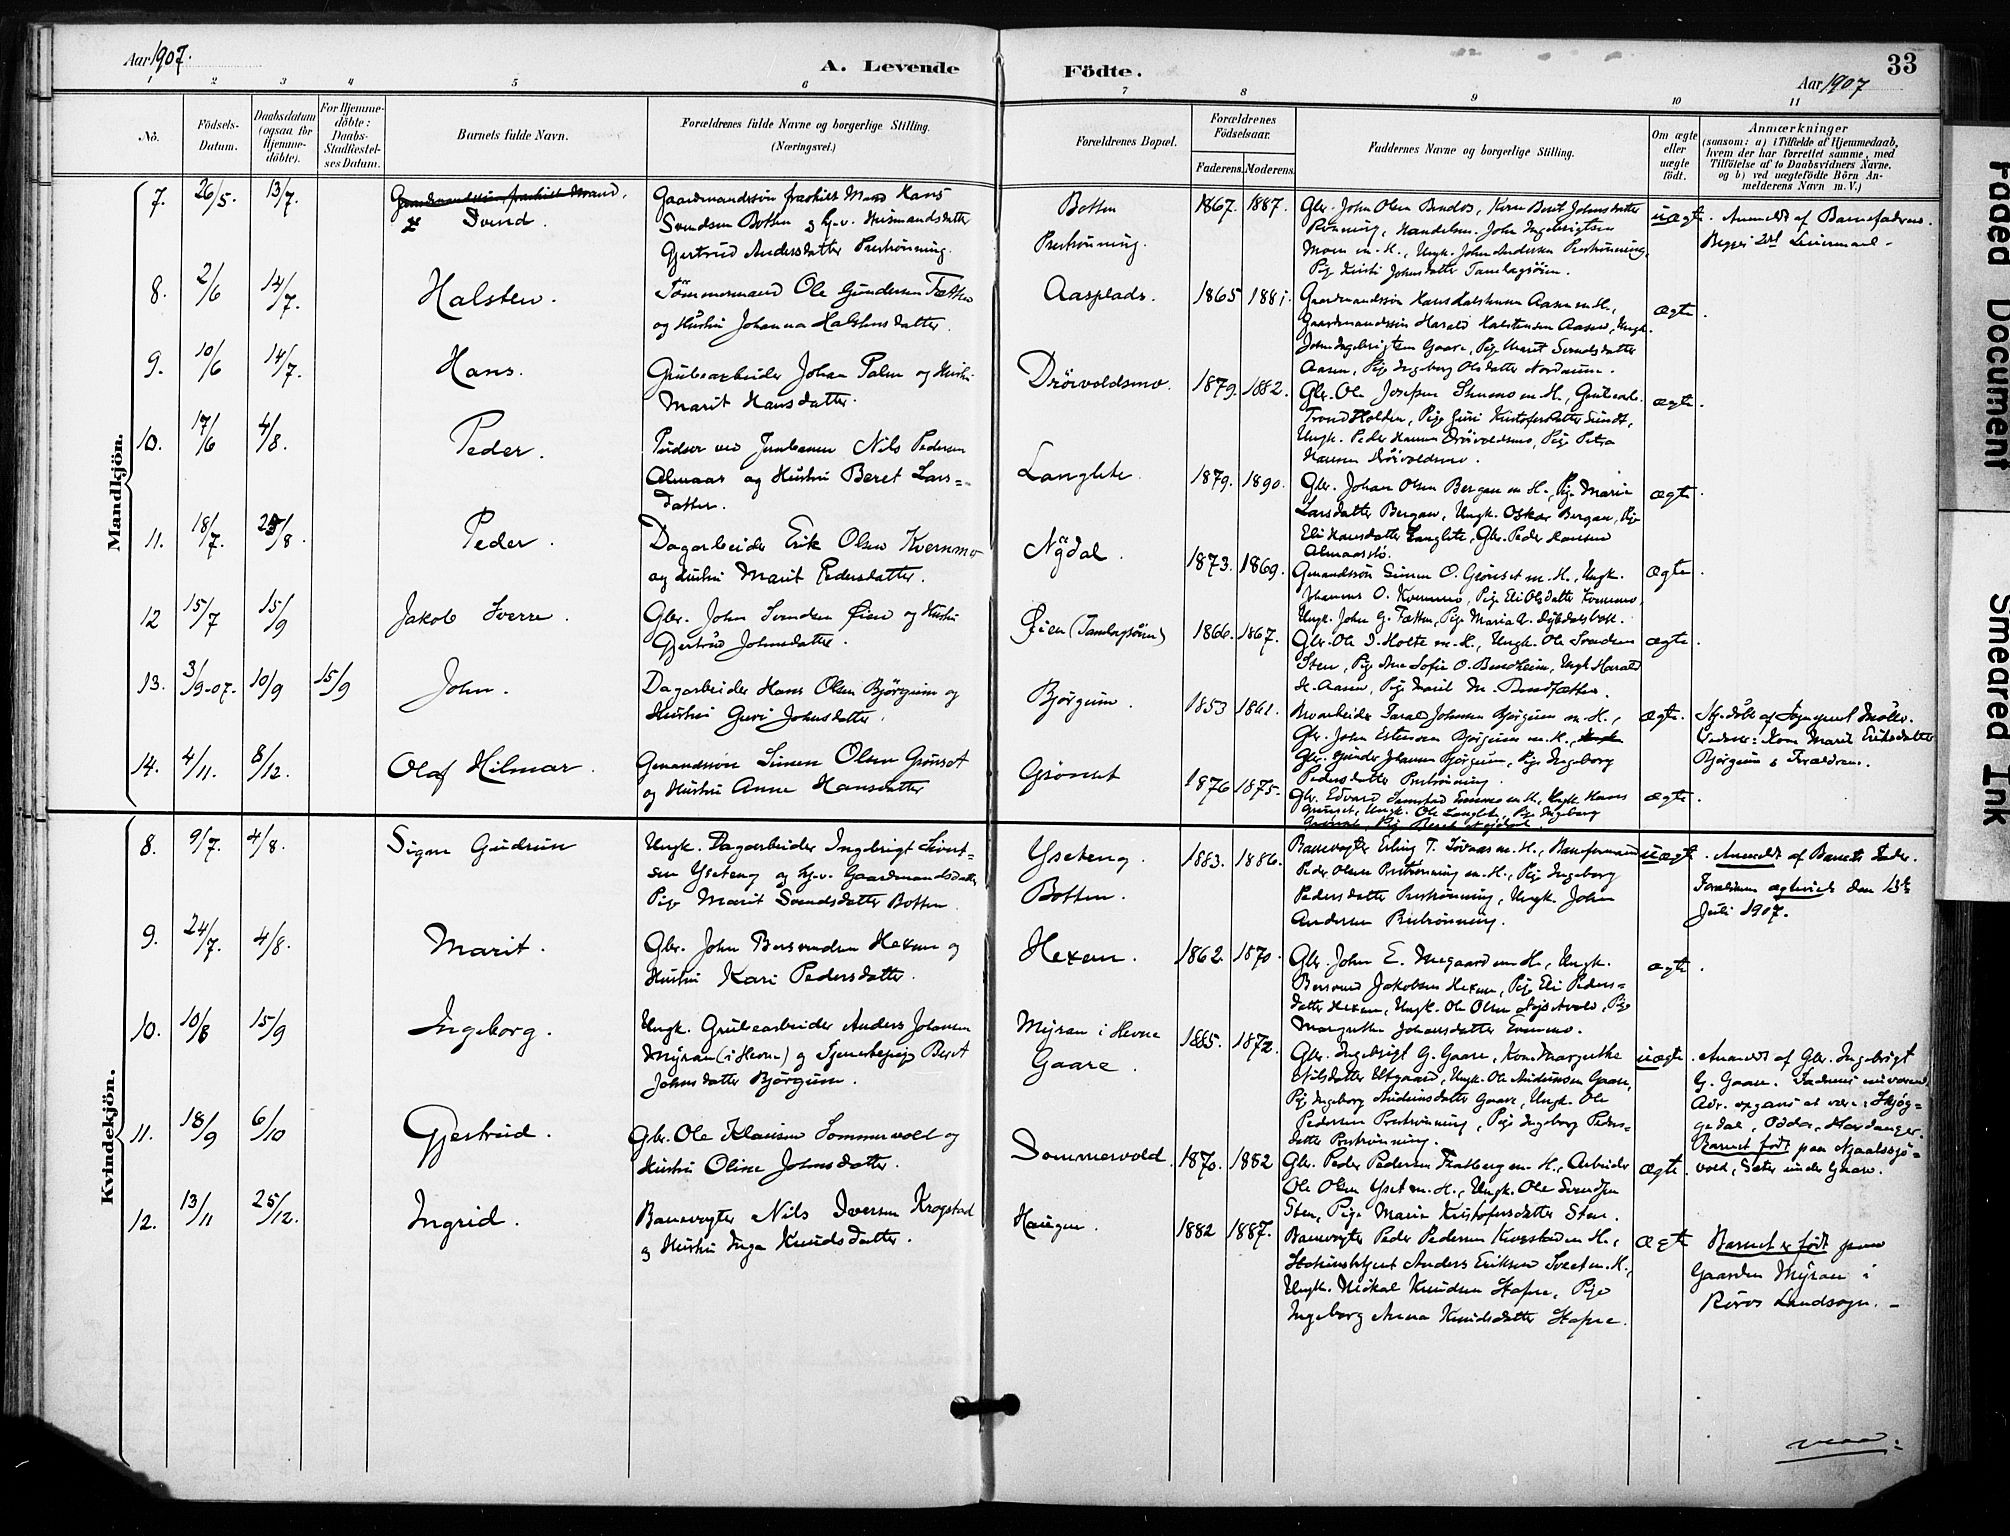 Aar 1907.
A. Levende Födte.
33
Aar 1907
1 2 3 4 5 6 7 8 9 10 11
No.
Födsels-Datum.
Daabsdatum (ogsaa for Hjemme-döbte).
For Hjemme-döbte: Daabs-Stadfæstel-ses Datum.
Barnets fulde Navn.
Forældrenes fulde Navne og borgerlige Stilling. (Næringsvei.)
Forældrenes Bopæl.
Forældrenes Födselsaar.
Faderens. Moderens.
Faddernes Navne og borgerlige Stilling.
Om ægte eller uægte födt.
Anmærkninger
(saasom: a) i Tilfælde af Hjemmedaab,
hvem der har forrettet samme, med
Tilföielse af to Daabsvidners Navne.
og b) ved uægtefödte Börn An-
melderens Navn m. V.)
Mandkjön.
7. 26/5. 13/7. Svend.
Gaardmandssön fraskilt Mand Hans
Svendsen Botten og Husmandsdatter
Gjertrud Andersdatter Preströnning.
Botten
Preströnning.
1867. 1887.
Gbr. John Olsen
Pige Kirsti Johnsdatter
uægte. Anmeldt af Barnefaderen.
8. 2/6 14/7. Halsten.
Tömmermand Ole Gundersen Fætten
og Hustru Johanna Halstensdatter.
Aasplads. 1865 1881.
Gaardmandssön Hans Halstensen Aasen m. H.,
Gaardmandssön Harald Halstensen Aasen, Ungk.
John Ingebrigtsen Gaare, Pige Marit Svendsdatter
Aasen, Pige Ingeborg Olsdatter
ægte.
9. 10/6 14/7. Hans.
Grubearbeider Johan Palm og Hustru
Marit Hansdatter.
Dröivoldsmo. 1879. 1882.
Gbr. Ole Josefsen m. H.,
Trond Holden, Pige Guri Kristofersdatter
Ungk. Peder Hansen Dröivoldsmo, Pige Petra
Hansen Dröivoldsmo.
ægte.
10. 17/6 4/8. Peder.
Pudser ved Jernbanen Nils Pedersen
Almaas og Hustru Beret Lars-
datter.
Langlete. 1879. 1890.
Gbr. Johan Olsen Bergan m. H., Pige Maria
Larsdatter Bergan, Ungk. Oskar Bergan, Pige
Eli Hansdatter Langlete, Gbr. Peder Hansen
ægte
11. 18/7. 25/8. Peder.
Dagarbeider Erik Olsen Kvernmo
og Hustru Marit Pedersdatter.
Nydal. 1873. 1869.
Gmandssön Simen O. Grönset m. H., Ungk.
Johannes O. Kvernmo, Pige Eli Olsdatter Kvernmo,
Ungk. John G. Fætten, Pige Maria
ægte.
12 15/7 15/9 Jakob Sverre.
Gbr. John Svendsen Öien og Hustru
Gjertrud Johnsdatter.
Öien (Tamlagsöien) 1866. 1867.
Gbr. Ole I. Holte m. H., Ungk. Ole Svendsen
Sten, Pige Ane Sofie O. Bendheim, Ungk. Harald
H. Aasen, Pige Marit
ægte
13. 3/9-07. 10/9 15/9 John.
Dagarbeider Hans Olsen Björgum og
Hustru Guri Johnsdatter.
Björgum. 1853 1861.
Johnsen Björgum m. H.,
Gbr. John Estensen Björgum m. H.,
Gbr. Gunder Johnsen Björgum, Pige Ingeborg
Pedersdatter Preströnning.
ægte. Hj. döbt af Sogneprest Möller.
Vidner: Kone Marit Eriksdatter
Björgum & Forældrene.
14. 4/11. 8/12. Olaf Hilmar.
Gmandssön Simen Olsen Grönset
og Hustru Anne Hansdatter
Grönset 1876 1875.
Gbr. Edvard m. H., Ungk. Hans
Grönset, Ungk. Ole Langlete, Pige Ingeborg
Grönset, Pige Beret
ægte.
Kvindekjön.
8. 9/7. 4/8. Signe Gudrun
Ungk. Dagarbeider Ingebrigt Sivert-
sen Yseteng og Gaardmandsdatter
Pige Marit Svendsdatter Botten.
Yseteng.
Botten.
1883. 1886.
Banevogter Erling T. m. H., Baneformand
Peder Olsen Preströnning m. H., Pige Ingeborg
Pedersdatter Preströnning, Ungk. John
Andersen Preströnning.
uægte. Anmeldt af Barnets Fader.
Forældrene ægteviet den 13de
Juli 1907.
9. 24/7. 4/8. Marit.
Gbr. John Bersvendsen Hexem og
Hustru Kari Pedersdatter.
Hexem. 1862 1870.
Gbr. John E. m. H., Ungk.
Bersvend Jakobsen Hexem, Pige Eli Peders-
datter Hexem, Ungk. Ole Olsen Nysetvold, Pige
Margrethe Johansdatter Evenmo.
ægte.
10. 10/8 15/9 Ingeborg.
Ungk. Grubearbeider Anders Johansen
Myran (i Hevne) og Tjenestepige Beret
Johnsdatter Björgum.
Myran i Hevne
Gaare.
1885. 1872.
Gbr. Ingebrigt G. Gaare, Kone Margrethe
Nilsdatter Eltgaard, Ungk. Ole Andersen Gaare,
Pige Ingeborg Andersdatter Gaare, Ungk. Ole
Pedersen Preströnning, Pige Ingeborg Peders-
datter Preströnning.
uægte. Anmeldt af Gbr. Ingebrigt
G. Gaare. Faderens nuværende
Adr. opgives at være: Skjög-
gedal, Odda, Hardanger.
Barnet födt paa Njaalssjö-
vold, Sæter under Gaare.
11. 18/9 6/10 Gjertrud.
Gbr. Ole Klausen Sommervold og
Hustru Oline Johnsdatter.
Sommervold. 1870. 1882
Gbr. Peder Pedersen Flatberg m. H., Arbeider
Ole Olsen Yset m. H., Ungk. Ole Svendsen
Sten, Pige Maria Kristofersdatter Sten.
ægte.
12. 13/11 25/12. Ingrid.
Banevogter Nils Iversen Krogstad
og Hustru Inga Knudsdatter.
Haugen. 1882 1887.
Banevogter Peder Pedersen m. H.,
Anders Eriksen m. H.,
Ungk. Mikal Knudsen Hafsæ, Pige
Ingeborg Anna Knudsdatter Hafsæ.
ægte Barnet er födt paa
Gaarden Myran i
Röros Landsogn.
Faded Document
Smeared Ink